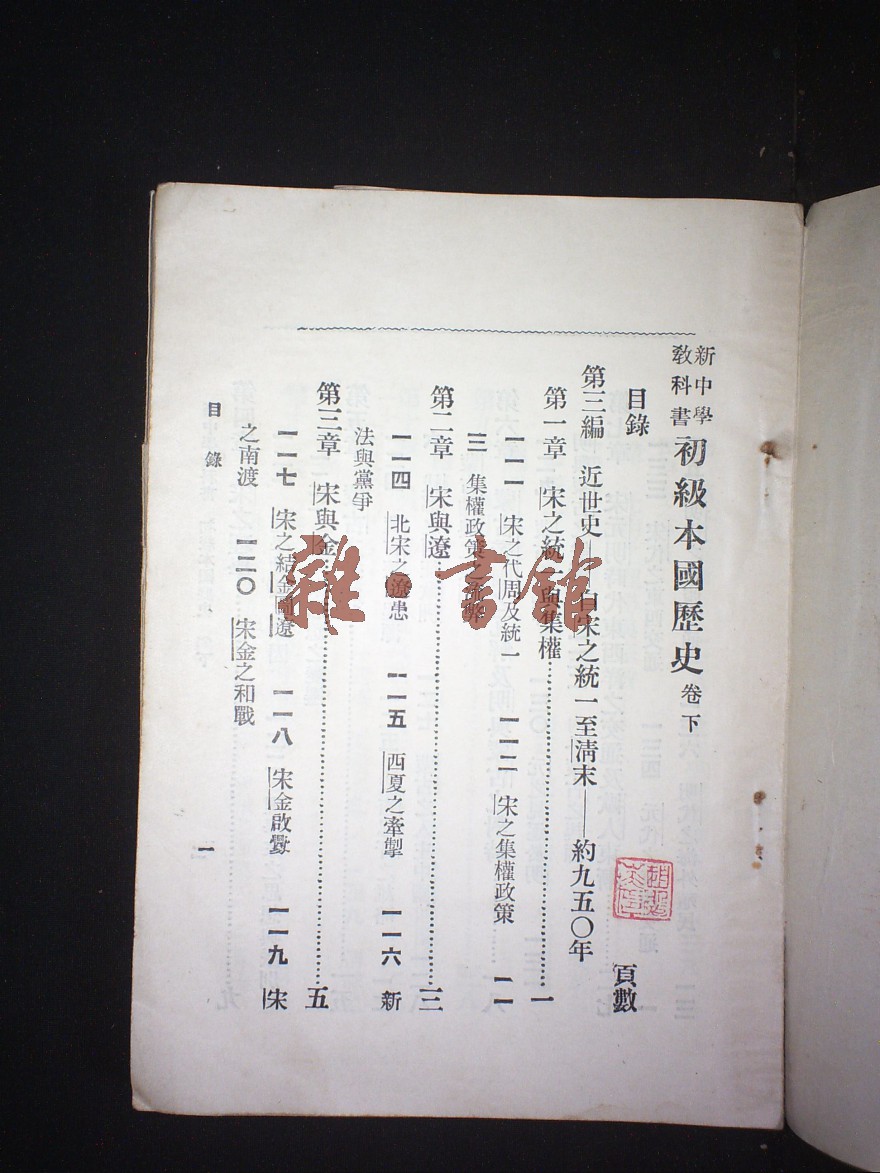 新中學教科書 初級本國歷史 卷下
目錄 頁數
第三編 近世史——自宋之統一至淸末——約九五〇年
第一章 宋之統一與集權……一
一一一 宋之代周及統一 一一二 宋之集權政策 一一
三 集權政策之流弊
第二章 宋與遼……三
一一四 北宋之遼患 一一五 西夏之牽掣 一一六 新
法與黨爭
第三章 宋與金……五
一一七 宋之結金圖遼 一一八 宋金啟釁 一一九 宋
之南渡 一二〇 宋金之和戰
目錄 一
雜書館